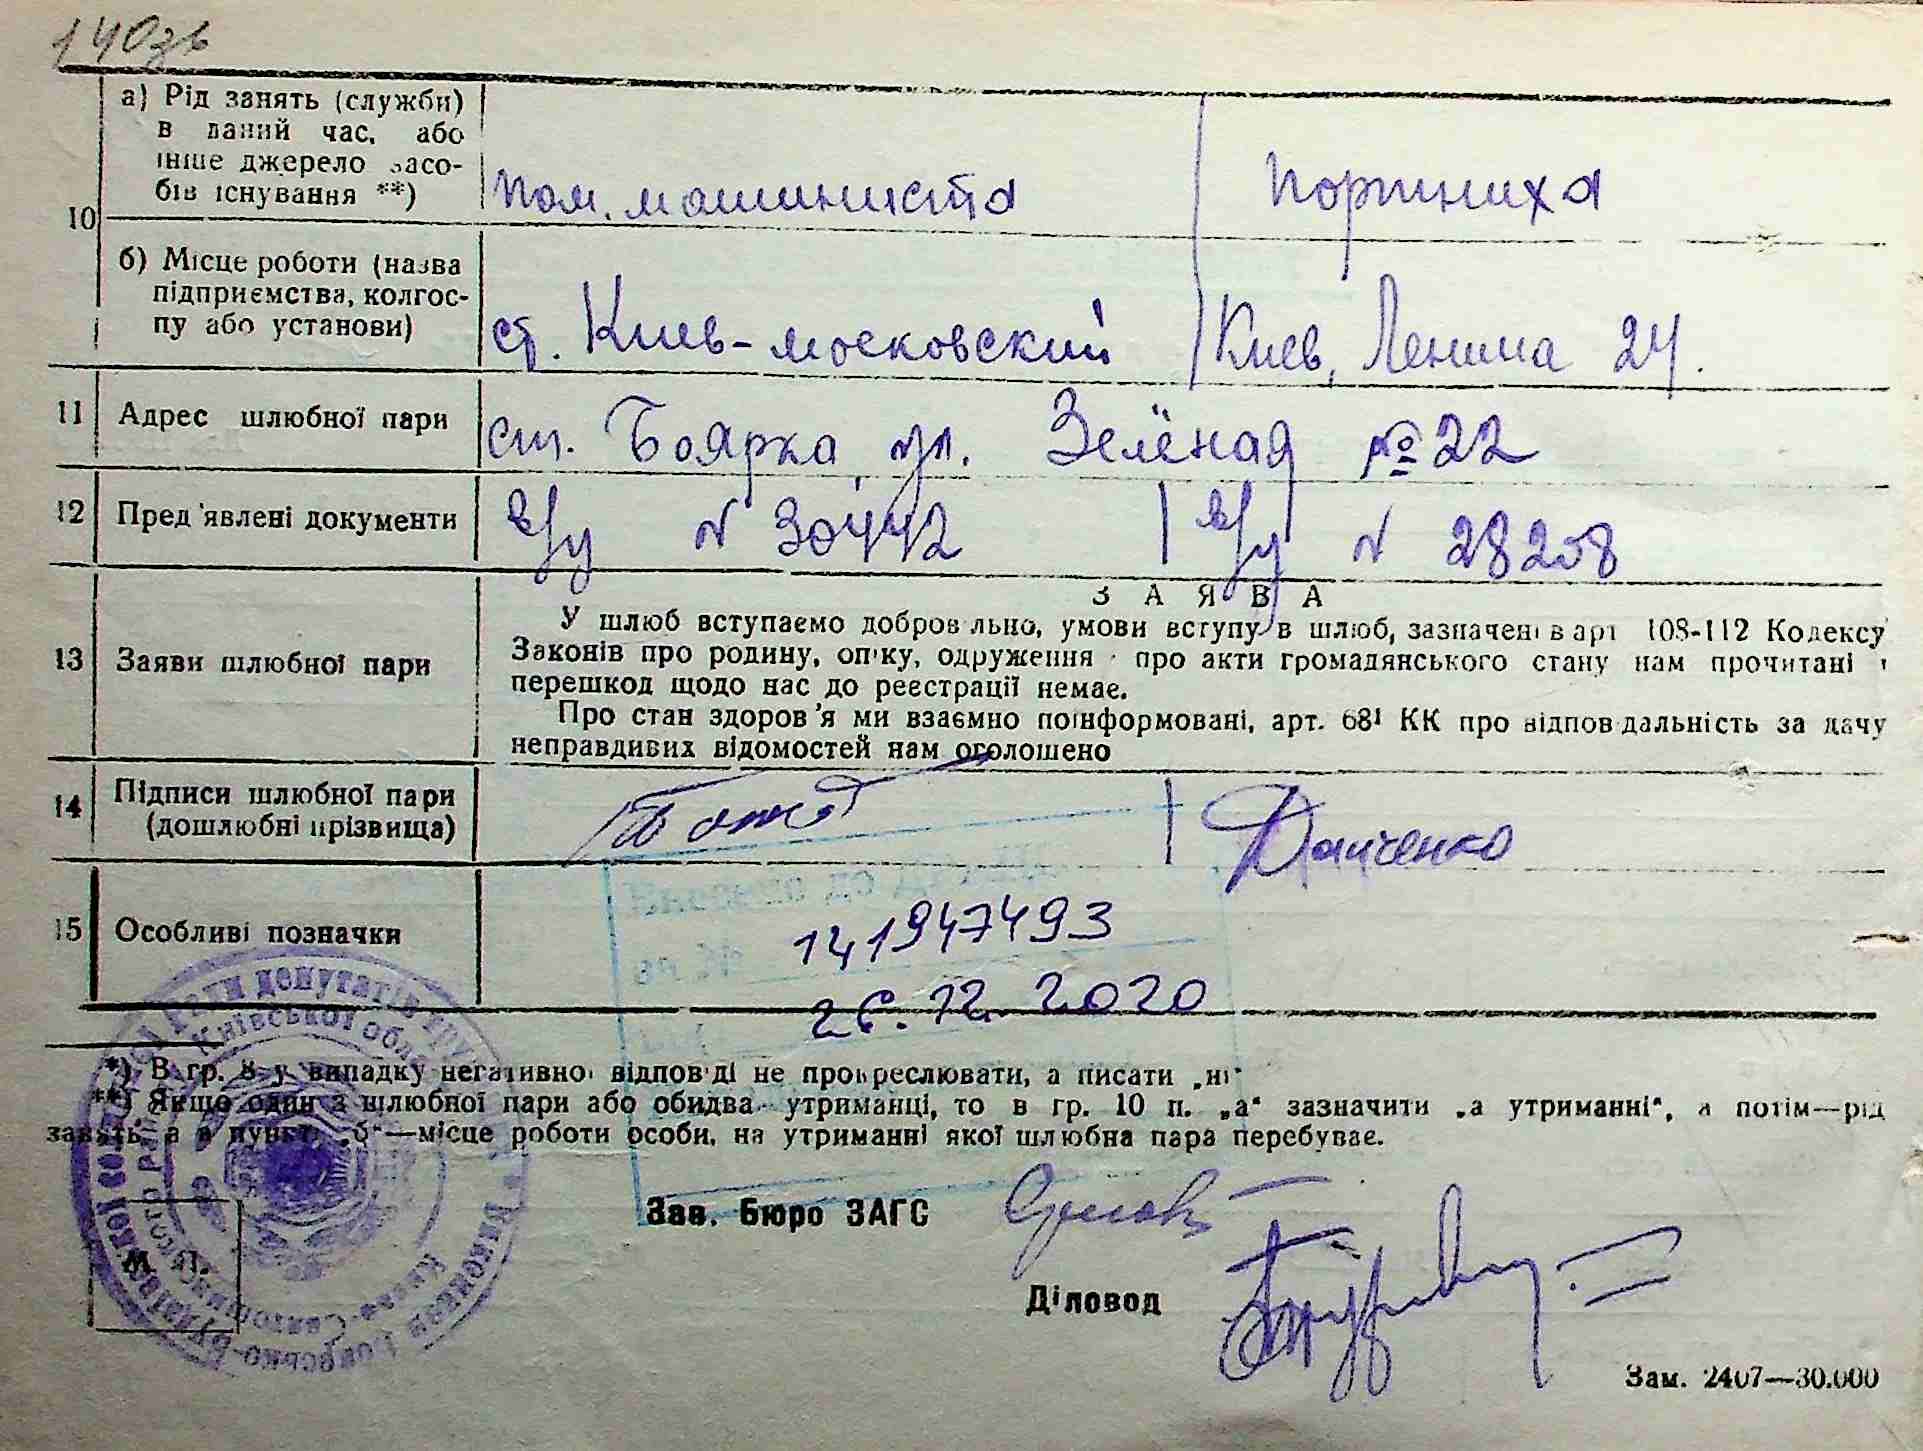 140зв
а) Рід занять (служби)
в даний час, або
інше джерело засо-
бів існування **)
пом. машиниста
портниха
10
б) Місце роботи (назва
підприємства, колгос-
пу або установи)
ст. Киев-московский
Киев, Ленина 24.
11
Адрес шлюбної пари
ст. Боярка ул. Зелёная №22
12
Пред'явлені документи
в/у N 30442
в/у N 28208
ЗАЯВА
13
Заяви шлюбної пари
У шлюб вступаємо добровільно, умови вступу в шлюб, зазначені в арт 108-112 Кодексу
Законів про родину, опіку, одруження і про акти громадянського стану нам прочитані і
перешкод щодо нас до реєстрації немає.
Про стан здоров'я ми взаємно поінформовані, арт. 68¹ КК про відповідальність за дачу
неправдивих відомостей нам оголошено
14
Підписи шлюбної пари
(дошлюбні прізвища)
Данченко
15
Особливі позначки
141947493
26.12.2020
*) В гр. 8 у випадку негативної відповіді не прокреслювати, а писати „ні"
**) Якщо один з шлюбної пари або обидва утриманці, то в гр. 10 п. „а" зазначити „а утриманні", а потім—рід
занять, а в пункті „б"—місце роботи особи, на утриманні якої шлюбна пара перебуває.
Зав. Бюро ЗАГС
М. П.
Діловод
Зам. 2407—30.000